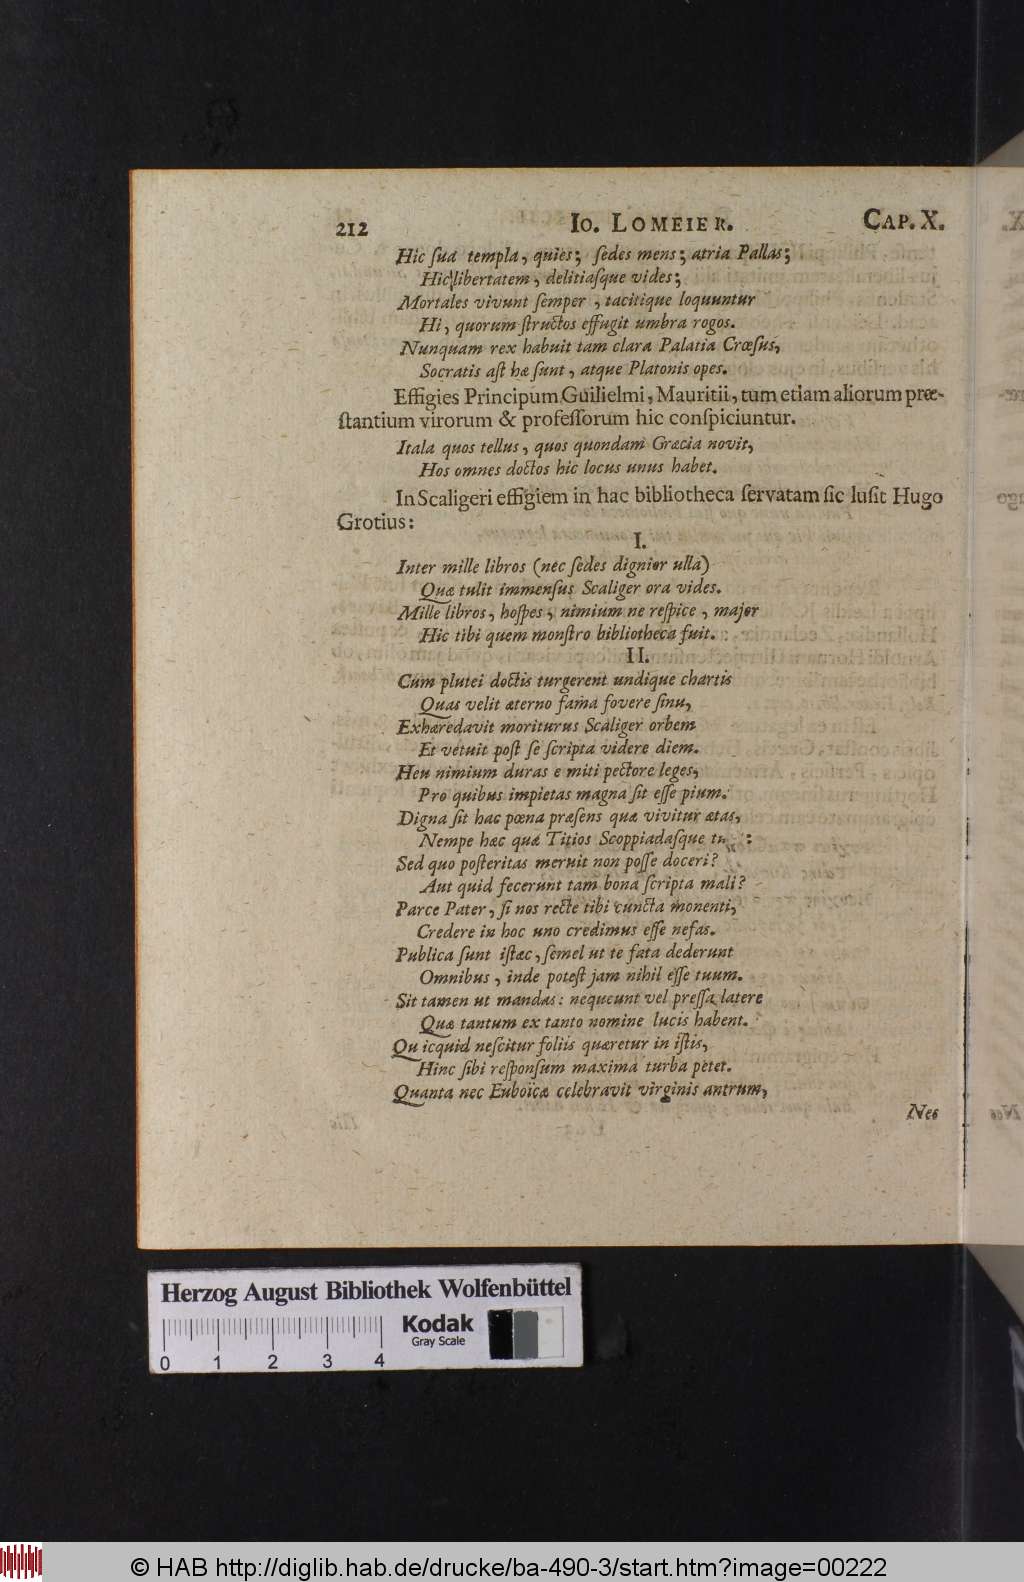 212 IO. LOMEIER. CAP. X.
Hic sua templa, quies; sedes mens; atria Pallas;
Hic libertatem, delitiasque vides;
Mortales vivunt semper, tacitique loquuntur
Hi, quorum structos effugit umbra rogos.
Nunquam rex habuit tam clara Palatia Crœsus,
Socratis ast hæ sunt, atque Platonis opes.
Effigies Principum Guilielmi, Mauritii, tum etiam aliorum præ-
stantium virorum & professorum hic conspiciuntur.
Itala quos tellus, quos quondam Græcia novit,
Hos omnes doctos hic locus unus habet.
In Scaligeri effigiem in hac bibliotheca servatam sic lusit Hugo
Grotius:
I.
Inter mille libros (nec sedes dignior ulla)
Quæ tulit immensus Scaliger ora vides.
Mille libros, hospes, nimium ne respice, major
Hic tibi quem monstro bibliotheca fuit.
II.
Cum plutei doctis turgerent undique chartis
Quas velit æterno fama fovere sinu,
Exhæredavit moriturus Scaliger orbem
Et vetuit post se scripta videre diem.
Heu nimium duras e miti pectore leges,
Pro quibus impietas magna sit esse pium.
Digna sit hac pœna præsens quæ vivitur ætas,
Nempe hæc quæ Titios Scoppiadasque :
Sed quo posteritas meruit non posse doceri?
Aut quid fecerunt tam bona scripta mali?
Parce Pater, si nos recte tibi cuncta monenti,
Credere in hoc uno credimus esse nefas.
Publica sunt istæc, semel ut te fata dederunt
Omnibus, inde potest jam nihil esse tuum.
Sit tamen ut mandas: nequeunt vel pressa latere
Quæ tantum ex tanto nomine lucis habent.
Quicquid nescitur foliis quæretur in istis,
Hinc sibi responsum maxima turba petet.
Quanta nec Euboïcæ celebravit virginis antrum,
Nec
Herzog August Bibliothek Wolfenbüttel
Kodak
Gray Scale
0 1 2 3 4
© HAB http://diglib.hab.de/drucke/ba-490-3/start.htm?image=00222